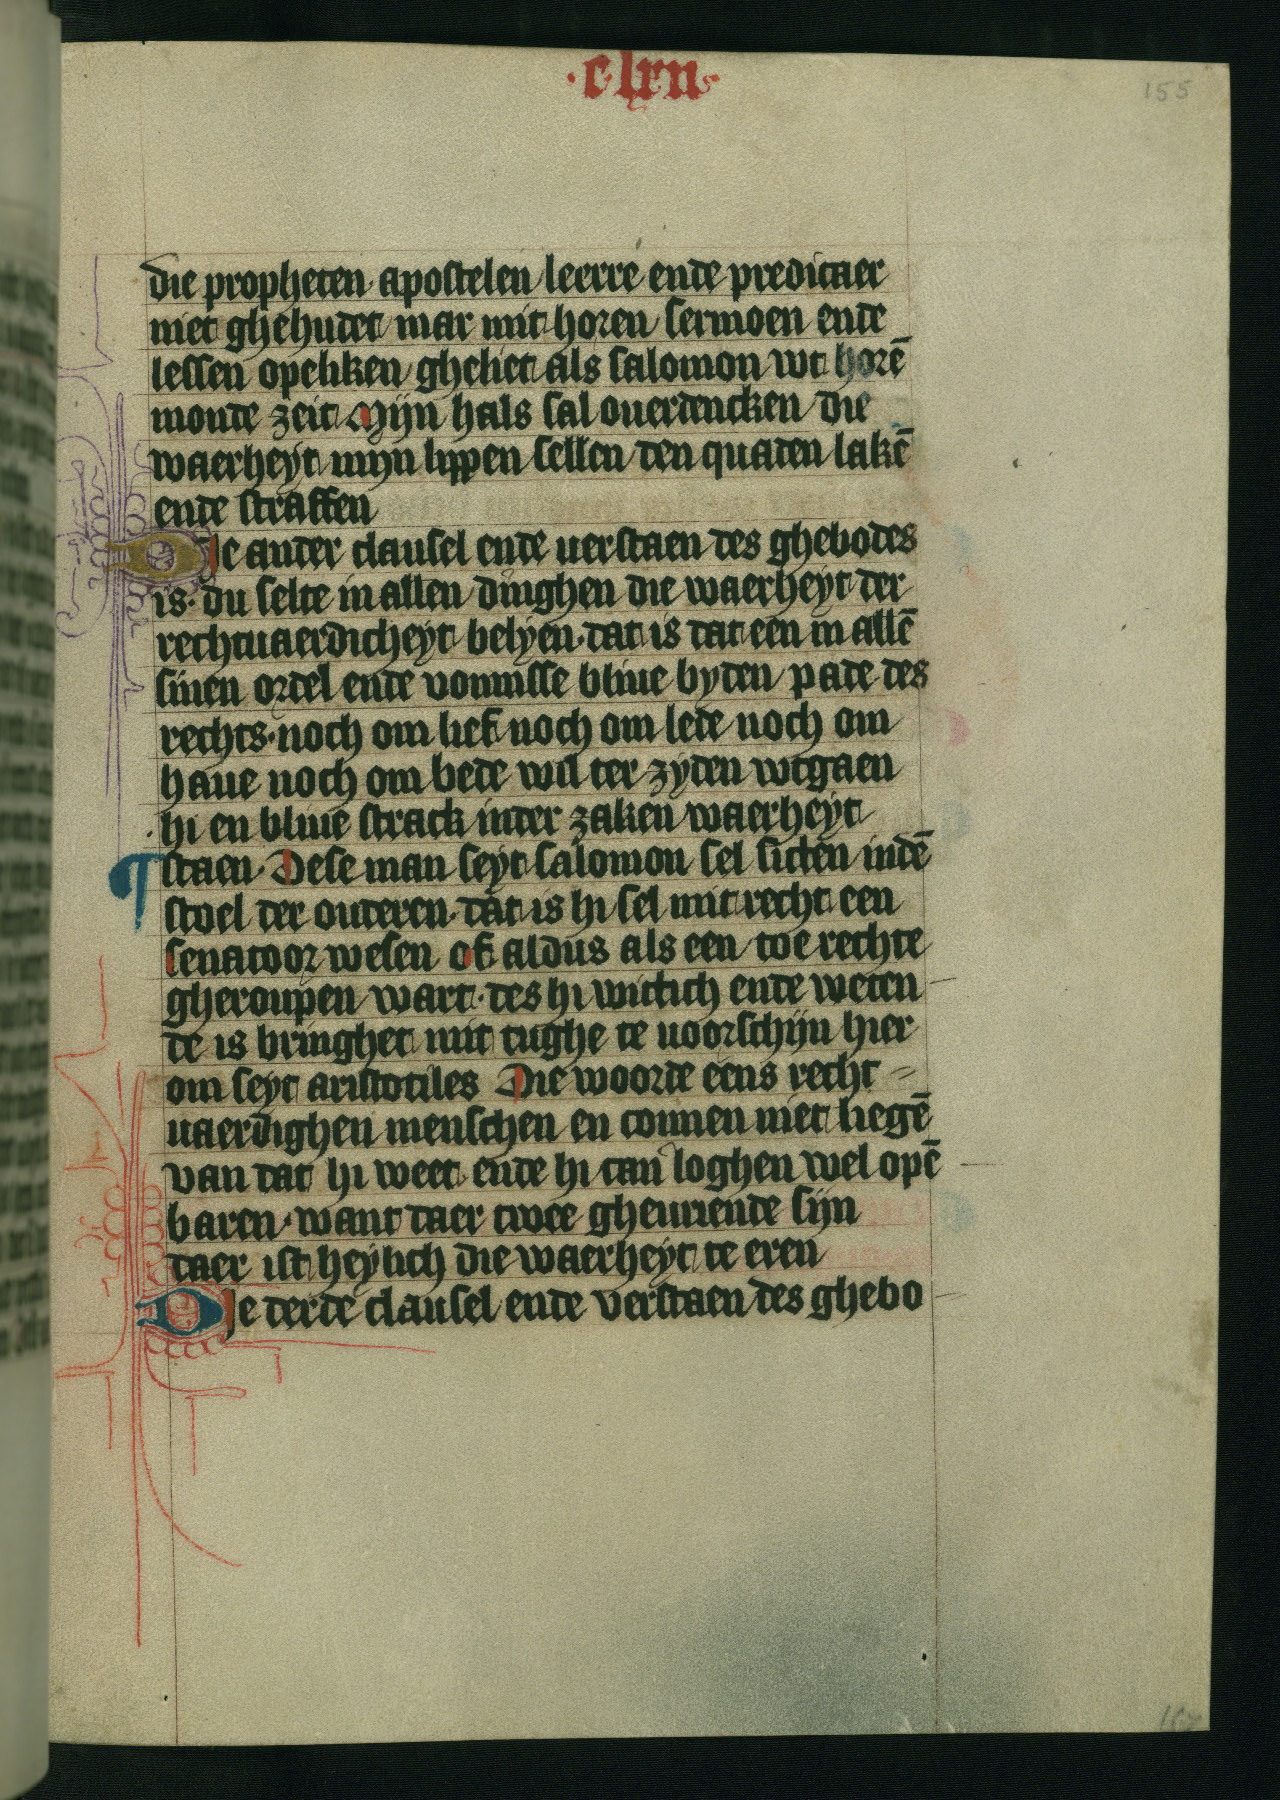 ·clxii·
155
die propheten apostelen leerre ende predicaer
niet ghehudet mar mit horen sermoen ende
lessen openliken gheliet als salomon wt horē
monde zeit Mijn hals sal ouerdencken die
waerheyt mijn lippen sellen den quaden lakē
ende straffen
DJe ander clausel ende uerstaen des ghebodes
is· du selte in allen dinghen die waerheyt der
rechtuaerdicheyt belyen· dat is dat een in allē
sinen ordel ende vonnisse bliue byden pade des
rechts· noch om lief noch om lede noch om
haue noch om bede wil ter zyden wtgaen
hi en bliue strack inder zaken waerheyt
¶ staen· Dese man seyt salomon sel sitten indē
stoel der ouderen· dat is hi sel mit recht een
senatoor wesen of aldus als een toe rechte
gheroupen wart· des hi witlich ende weten
de is bringhet mit tughe te uoorschijn hier
om seyt aristotiles Die woorde eens recht
uaerdighen menschen en connen niet liegē
van dat hi weet ende hi can loghen wel opē
baren· want daer twee gheuriende sijn
daer ist heylich die waerheyt te eren
DJe derde clausel ende verstaen des ghebo